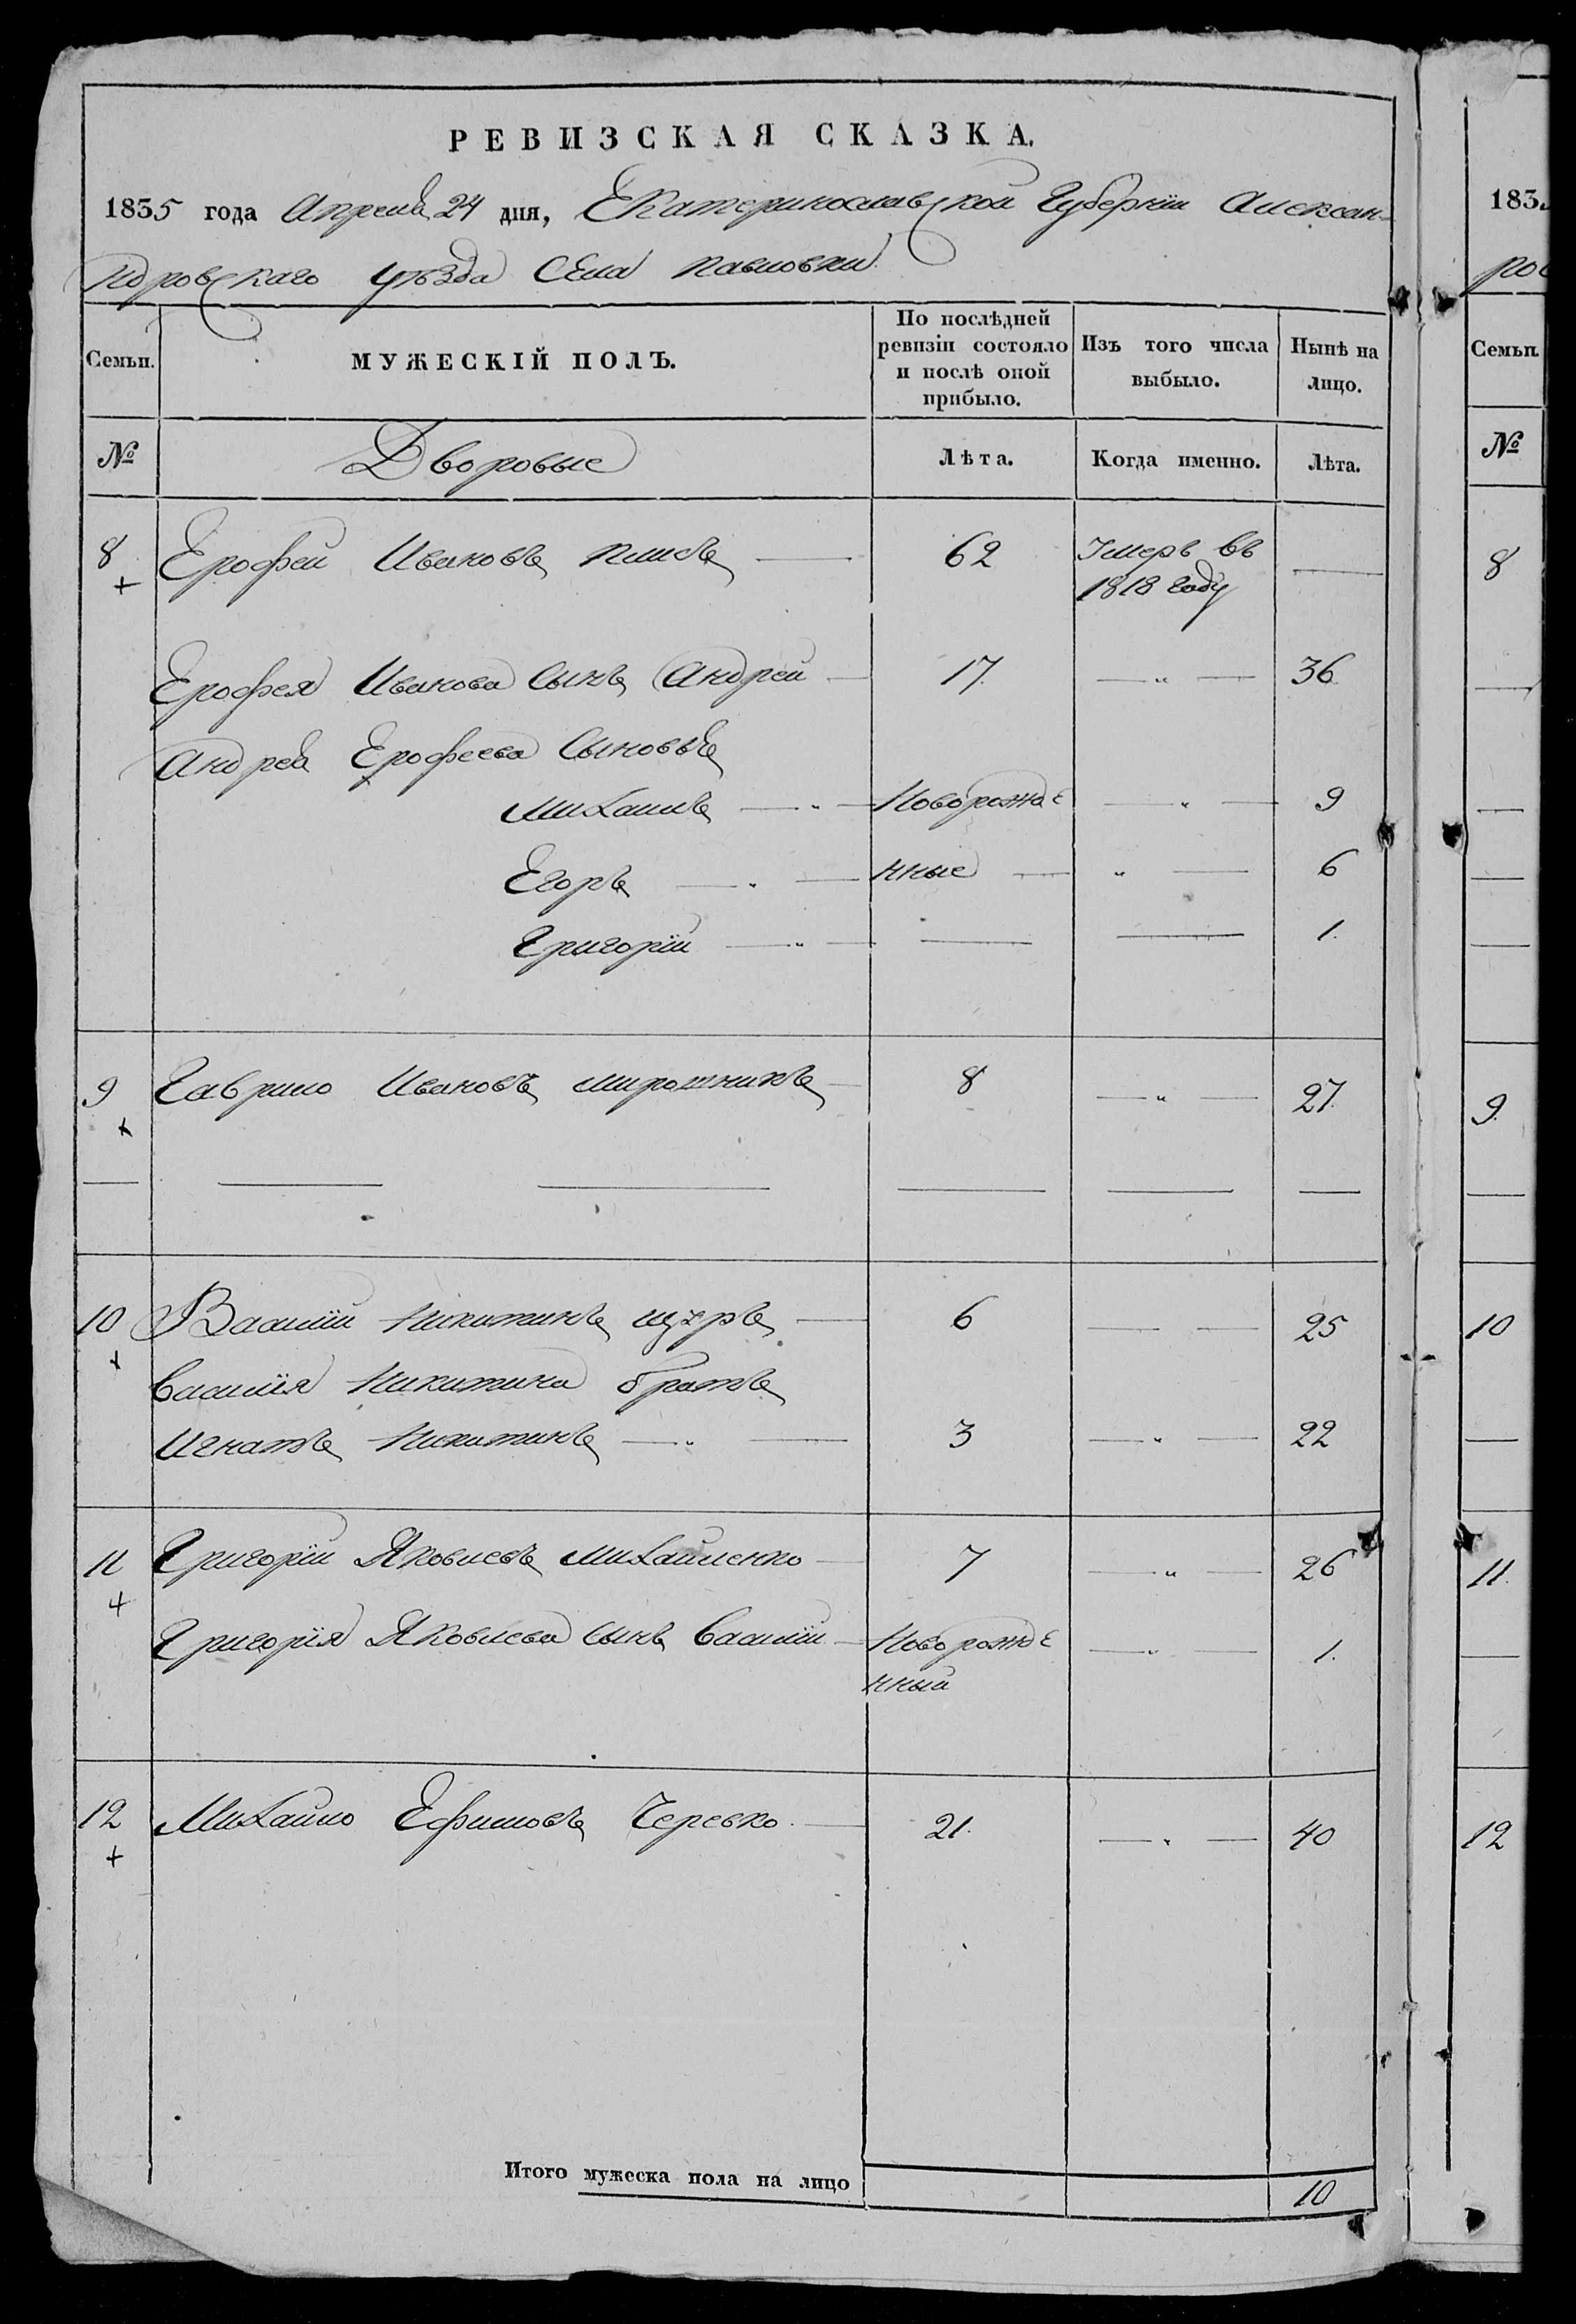 РЕВИЗСКАЯ СКАЗКА.
1835 года Апреля 24 дня, Екатеринославской Губернiи Алексан-
ндровскаго уѣзда Села Павловки
Семьи.
МУЖЕСКІЙ ПОЛЪ.
По послѣдней ревизіи состояло и послѣ оной прибыло.
Изъ того числа выбыло.
Нынѣ на лицо.
№ Дворовые Лѣта. Когда именно. Лѣта.
8 Ерофей Ивановъ 62 Умеръ въ
1818 году
Ерофея Иванова Сынъ Андрей 17. — „ — 36
Андрея Ерофеева Сыновья
Михаилъ — „ — Новорожде — „ — 9
Егоръ — „ — нные — „ — 6
Григорiй — „ — — — 1.
9 Гаврило Ивановъ мирошникъ — 8 — „ — 27.
10 Василiй Никитинъ — 6 — — 25
Василiя Никитина братъ
Игнатъ Никитинъ — „ — 3 — „ — 22
11 Григорiй Яковлевъ Михайленко — 7 — „ — 26
Григорiя Яковлева сынъ Василiй — Новорожде — „ — 1.
нный
12 Михайло Ефимовъ Черевко. — 21. — „ — 40
Итого мужеска пола на лицо 10
183
ро
Семьи.
№
8
9.
10
11.
12